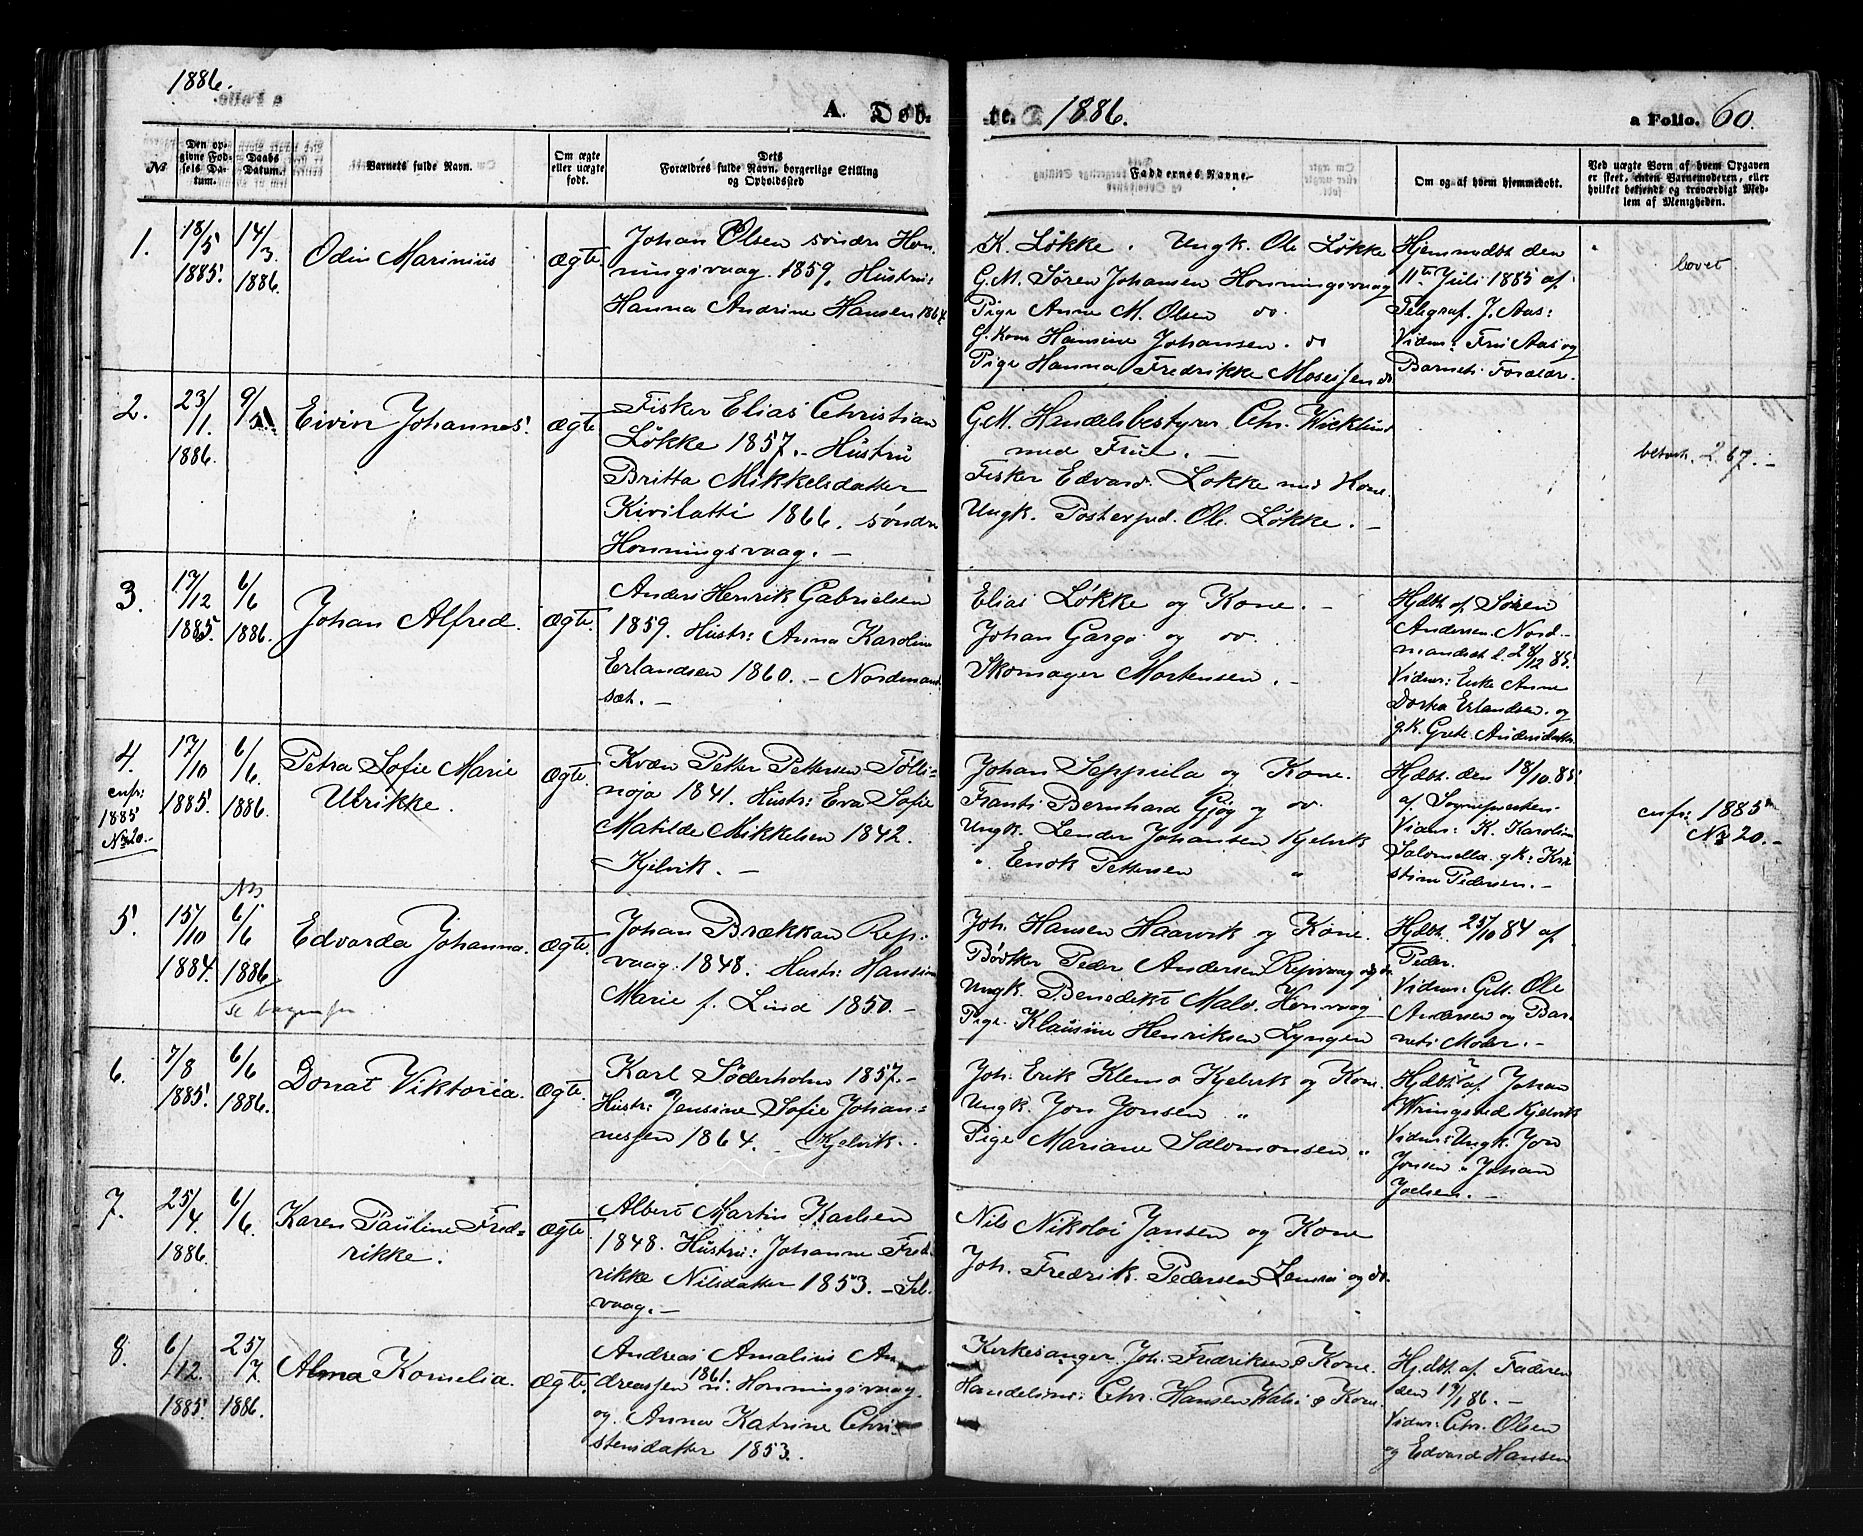 1886.
A. Døb-
te. 1886.
a Folio. 60.
No
Den op-
givne Fød-
sels Da-
tum.
Daabs
Datum.
Barnets fulde Navn.
Om ægte
eller uægte
født.
Dets
Forældres fulde Navn, borgerlige Stilling
og Opholdssted
Faddernes Navne.
Om og af hvem hjemmedøbt.
Ved uægte Børn af hvem Opgaven
er skeet, enten Barnemoderen, eller
hvilket bekjendt og troværdigt Med-
lem af Menigheden.
1.
18/5
1885.
14/3.
1886.
Odin Marinius
Ægte.
Johan Olsen søndre Hon-
ningsvaag. 1859. Hustru:
Hanna Andrine Hansen 1864.
K. Løkke. Ungk. Ole Løkke
G.M. Søren Johansen Honningsvaag
Pige Anne M. Olsen do
G. Kone Hansine Johansen. do
Pige Hanna Fredrikke Mosessen do
Hjemmedbt. den
11te Juli 1885 af
Telegraf. J. Aas:
Vidner: Fru Aas og
Barnets Forældre.
2.
23/1.
1886.
9/5
Eivin Johannes
Ægte
Fisker Elias Christian
Løkke 1857. - Hustru
Britta Mikkelsdatter
Kivilatti 1866. søndre
Honningsvaag. -
G.M. Handelsbestyrer Chr. Wicklund
med Frue. -
Fisker Edvard Løkke med Kone.
Ungk. Ole Løkke. -
2. 67. -
3.
17/12
1885.
6/6
1886.
Johan Alfred.
Ægte.
Anders Henrik Gabrielsen
1859. Hustr: Anna Karoline
Erlandsen 1860. - Nordmand-
sæt. -
Elias Løkke og Kone. -
Johan Gargo og do.
Skomager Mortensen. -
Hjdbt. af Søren
Andersen Nord-
mandsæt d. 28/12 85.
Vidner: Enke Anne
Dortea Erlandsen. og
g.k. Grete Andersdatter.
4.
cnfr:
1885
No 20. -
17/10
1885.
6/6.
1886.
Petra Sofie Marie
Ulrikke.
Ægte.
Kvæn Petter Pettersen Tolli-
noja 1841. Hustr: Eva Sofie
Matilde Mikkelsen 1842.
Kjelvik. -
Johan Seppula og Kone.
Frants Bernhard Gjøg og do.
Ungk. Johansen Kjelvik
" Enok Pettersen "
Hjdbt. den 18/10.85
af Sognepresten.
Vidner: K. Karoline
Salomella. gk: Kri-
stine Pedersen. -
cnfr: 1885
No 20. -
5.
15/10
1884.
NB.
6/6
1886
se bagenfor
Edvarda Johanna.
Ægte.
Johan Brækkan Rep-
vaag. 1848. Hustr: Hansine
Marie f. Lind 1850. -
Joh. Hansen Haarvik og Kone.
Bødker Peder Andersen Repvaag og do.
Ungk. Benedikt Honvaag
Pige Klausine Henriksen Lyngen
Hjdbt. 25/10 84 af
Peder.
Vidner: G.M. Ole
Andersen og Bar-
nets Moder. -
6.
7/8
1885.
6/6
1886.
Donat Viktoria.
Ægte.
Karl Søderholm 1857. -
Hustr: Jensine Sofie Johan-
nessen 1864. - Kjelvik.
Joh. Erik Klemo Kjelvik og Kone.
Ungk. Jon Jonsen "
Pige Mariane Salomonsen "
Hjdbt? af Johan
Kjelvik
Vidner: Ungk. Jon
Jonsen " Johan
Joelsen. -
7.
25/4
1886.
6/6.
Karen Pauline Fred-
rikke.
Ægte.
Albert Martin Karlsen
1848. Hustru: Johanne Fred-
rikke Nilsdatter 1853. - Sel-
vaag. -
Nils Nikolai Jansen og Kone
Joh. Fredrik Pedersen og do.
8.
6/12.
1885.
25/7
1886.
Alma Kornelia.
Ægte.
Andreas Amalius An-
dreassen 1861. n: Honningsvaag.
og Anna Katrine Chri-
stensdatter 1853.
Kirkesanger Joh. Fredriksen & Kone.
Chr. Hansen & Kone.
Hjdbt. af Faderen
den 19/1 86. -
Vidner: Chr. Olsen
og Edvard Hansen